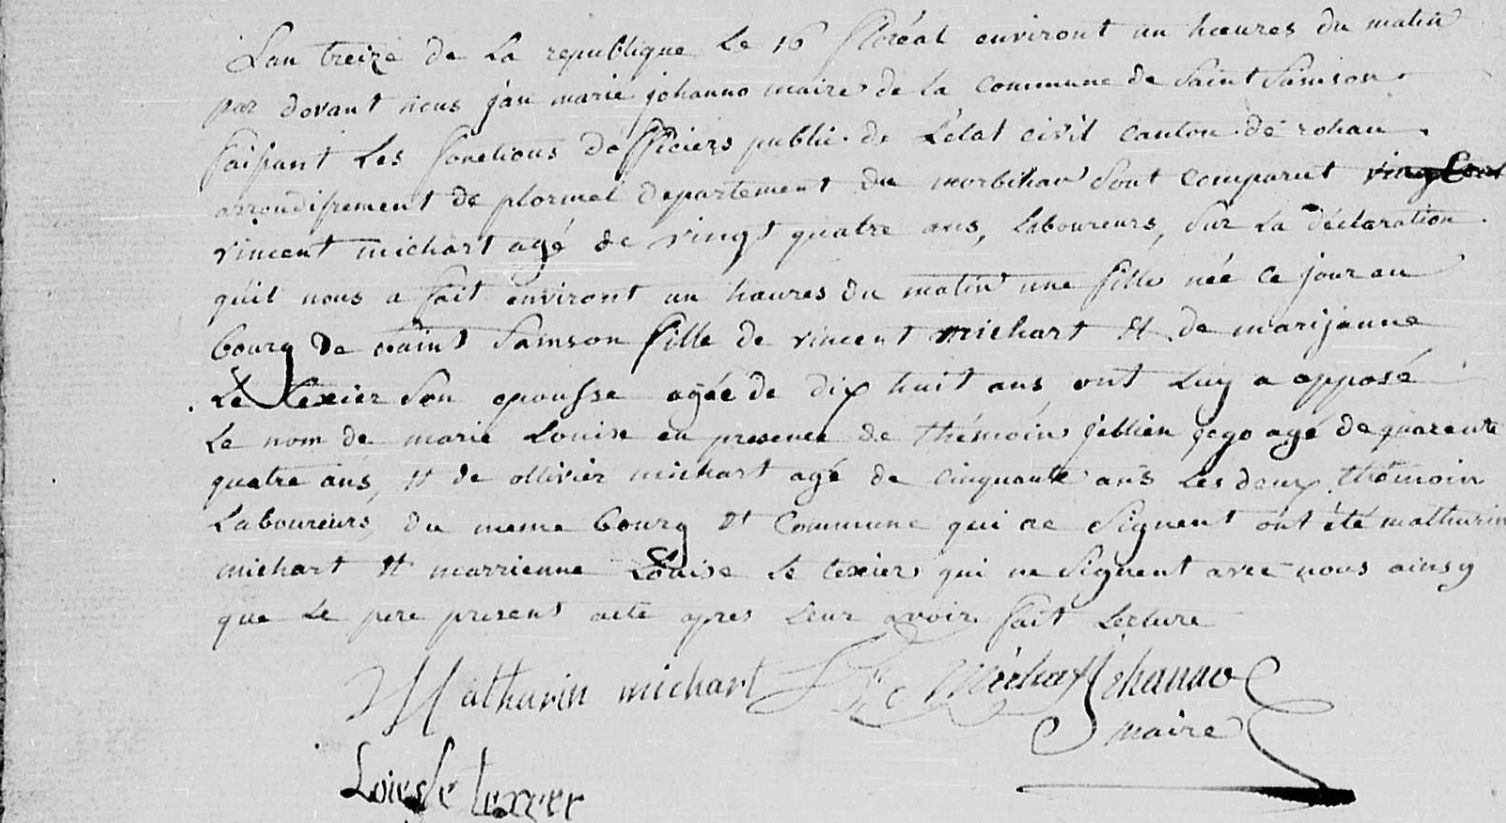 Lan treize de La republique Le 16 floréal environt un hœures du matin
par dovant nous jan marie johanno maire de la commune de Saint Samson
faisant Les fonctions dofficiers public de L'etat civil canton de rohan
arrondissement de plormel departement du morbihan Sont comparut
vincent michart agé de vingt quatre ans, Laboureurs, Sur La déclaration
quil nous a fait environt un hœures du matin une fille née ce jour au
bourg de Saint Samson fille de vincent michart et de marijanne
Le texier Son epousse agée de dix huit ans ont Luy a apposé
Le nom de marie Louise en presence de thémoin jullien jego agé de quarente
quatre ans, et de ollivier michart agé de cinquante ans Les deux thémoin
Laboureurs, du meme bourg et Commune qui ne Signent ont été mathurin
michart et marrienne Louise Le texier qui ne Signent avec nous ainsy
que Le pere present acte apres Leur avoir fait Lecture
Mathurin michart Michart Johanno
maire
Loise Le texeer